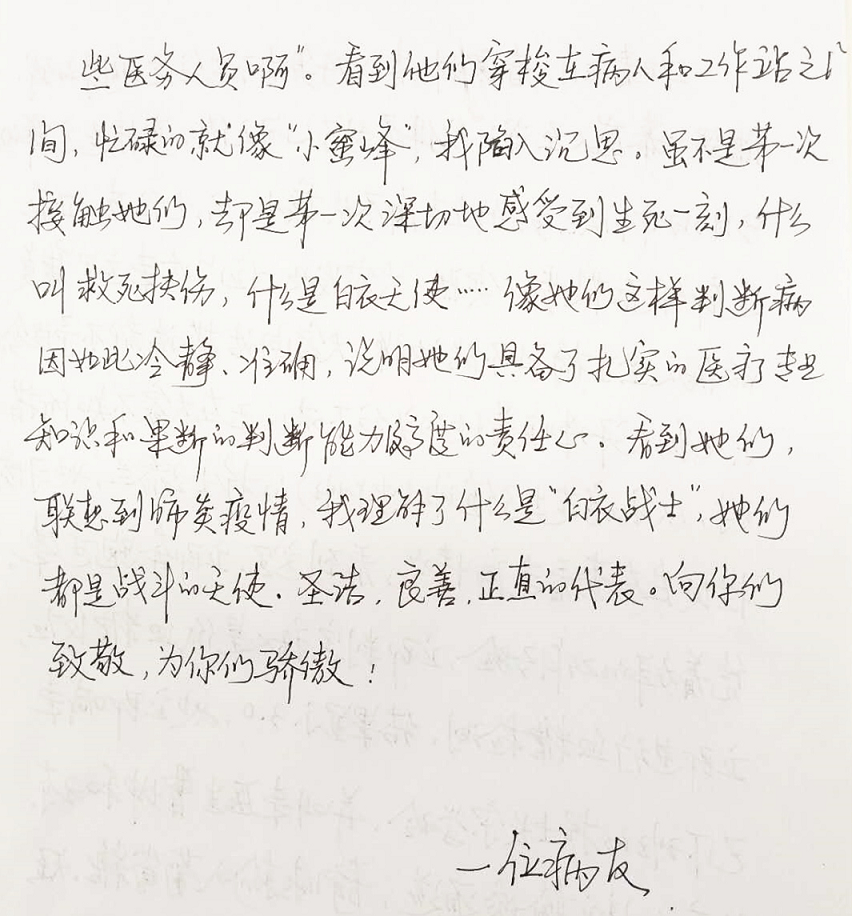 些医务人员啊"。看到他们穿梭在病人和工作站之
间,忙碌的就像"小蜜蜂",我陷入沉思。虽不是第一次
接触她们,却是第一次深切地感受到生死一刻,什么
叫救死扶伤,什么是白衣天使…… 像她们这样判断病
因如此冷静、准确,说明她们具备了扎实的医疗专业
知识和果断的判断能力及高度的责任心。看到她们,
联想到肺炎疫情,我理解了什么是"白衣战士",她们
都是战斗的天使、圣洁,良善,正直的代表。向你们
致敬,为你们骄傲!
一位病友